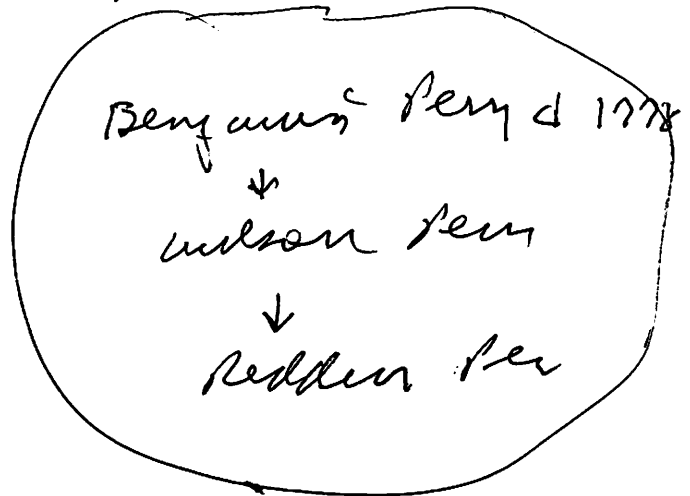 Benjamin Perry d 1778
↓
Wilson Perry
↓
Redden Per